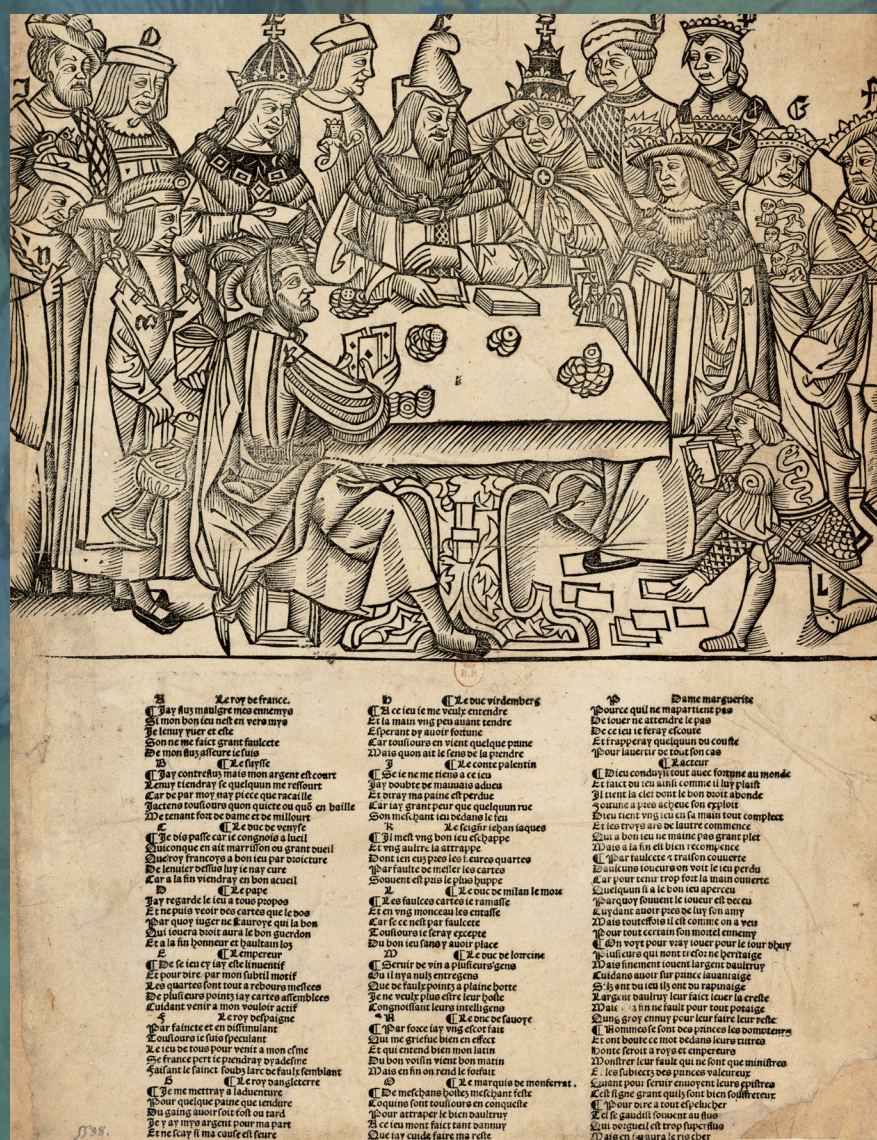 G
A
n
m
A
L
A Le roy de france.
¶ Jay flux maulgre mes ennemys
Si mon bon ieu nest en vers mys
Je lenuy yuer et este
Son ne me faict grant faulcete
De mon flux asseure ie suis
B ¶ Le suysse
¶ Jay contreflux mais mon argent est court
Lenuy tiendray se quelquun me ressourt
Car de par moy nay piece que racaille
Jactens tousiours quon quicte ou quō en baille
Me tenant fort de dame et de millourt
C ¶ Le duc de venyse
¶ Je dis passe car ie congnois a lueil
Quiconque en ait marrisson ou grant dueil
Que roy francoys a bon ieu par droicture
De lenuier dessus luy ie nay cure
Car a la fin viendray en bon acueil
D ¶ Le pape
Jay regarde le ieu a tous propos
Et ne puis veoir des cartes que le dos
Par quoy iuger ne scauroye qui la bon
Qui iouera droit aura le bon guerdon
Et a la fin honneur et haultain loz
E ¶ Lempereur
¶ De se ieu cy iay este linuentif
Et pour dire par mon subtil motif
Les quartes sont tout a rebours meslees
De plusieurs pointz iay cartes assemblees
Cuidant venir a mon vouloir actif
F Le roy despaigne
Par faincte et en dissimulant
Tousiours ie suis speculant
Le ieu de tous pour venir a mon esme
Se france pert ie prendray dyadesme
Faisant le sainct soubz larc de faulx semblant
G ¶ Le roy dangleterre
¶ Je me mettray a laduenture
Pour quelque paine que iendure
Du gaing auoir soit tost ou tard
Je y ay mys argent pour ma part
Et ne scay si ma cause est seure
h ¶ Le duc virdemberg
¶ A ce ieu ie me veulx entendre
Et la main vng peu auant tendre
Esperant dy auoir fortune
Car tousiours en vient quelque prune
Mais quon ait le sens de la prendre
J ¶ Le conte palentin
¶ Se ie ne me tiens a ce ieu
Jay doubte de mauuais adueu
Et diray ma paine est perdue
Car iay grant peur que quelquun rue
Son meschant ieu dedans le feu
K Le seigñr iehan iaques
¶ Jl mest vng bon ieu eschappe
Et vng aultre la attrappe
Dont ien euz pres les fleures quartes
Par faulte de mesler les cartes
Souuent est pris le plus huppe
L ¶ Le duc de milan le more
¶ Les faulces cartes ie ramasse
Et en vng monceau les entasse
Car se ce nest par faulcete
Tousiours ie seray excepte
Du bon ieu sans y auoir place
M ¶ Le duc de lorraine
¶ Seruir de vin a plusieurs gens
Ou il nya nulz entregens
Que de faulx pointz a plaine hotte
Je ne veulx plus estre leur hoste
Congnoissant leurs intelligens
N ¶ Le duc de sauoye
¶ Par force iay vng escot fait
Qui me griefue bien en effect
Et qui entend bien mon latin
Du bon voisin vient bon matin
Mais en fin on rend le forfait
O ¶ Le marquis de monferrat.
¶ De meschans hostez meschant feste
Coquins sont tousiours en conqueste
Pour attraper le bien daultruy
A ce ieu mont faict tant dannuy
Que iay cuide faire ma reste
P Dame marguerite
Pource quil ne mapartient pas
De iouer ne attendre le pas
De ce ieu ie feray escoute
Et frapperay quelquun du couste
Pour lauertir de tout son cas
¶ Lacteur
¶ Dieu conduyit tout auec fortune au monde
Et faict du ieu ainsi comme il luy plaist
Jl tient la clef dont le bon droit abonde
Fortune a pres acheue son exploit
Dieu tient vng ieu en sa main tout complect
Et les troys ars de lautre commence
Qui a bon ieu ne maine pas grant plet
Mais a la fin est bien recompence
¶ Par faulcete & traison couuerte
Daulcuns ioueurs on voit le ieu perdu
Car pour tenir trop fort la main ouuerte
Quelquun si a le bon ieu aperceu
Parquoy souuent le ioueur est deceu
Cuydant auoir pres de luy son amy
Mais toutteffois il est comme on a veu
Pour tout certain son mortel ennemy
¶ On voyt pour vray iouer pour le iour dhuy
Plusieurs qui nont tresor ne heritaige
Mais finement iouent largent daultruy
Cuidans auoir sur prince lauantaige
Silz ont du ieu ilz ont du rapinaige
Largent daultruy leur faict leuer la creste
Mais a la fin ne fault pour tout potaige
Qung groy ennuy pour leur faire leur reste
¶ Nommes se sont des princes les dompteurs
Et ont boute ce mot dedans leurs tittres
Honte seroit a roys et empereurs
Monstrer leur fault qui ne sont que ministres
Et les subiectz des princes valeureux
Quant pour seruir enuoyent leurs epistres
Cest signe grant quilz sont bien souffreteux
¶ Pour dire a tout espelucher
Tel se gaudist souuent au flus
Qui dorgueil est trop superflus
Mais en fin aura le ris cher
5538.